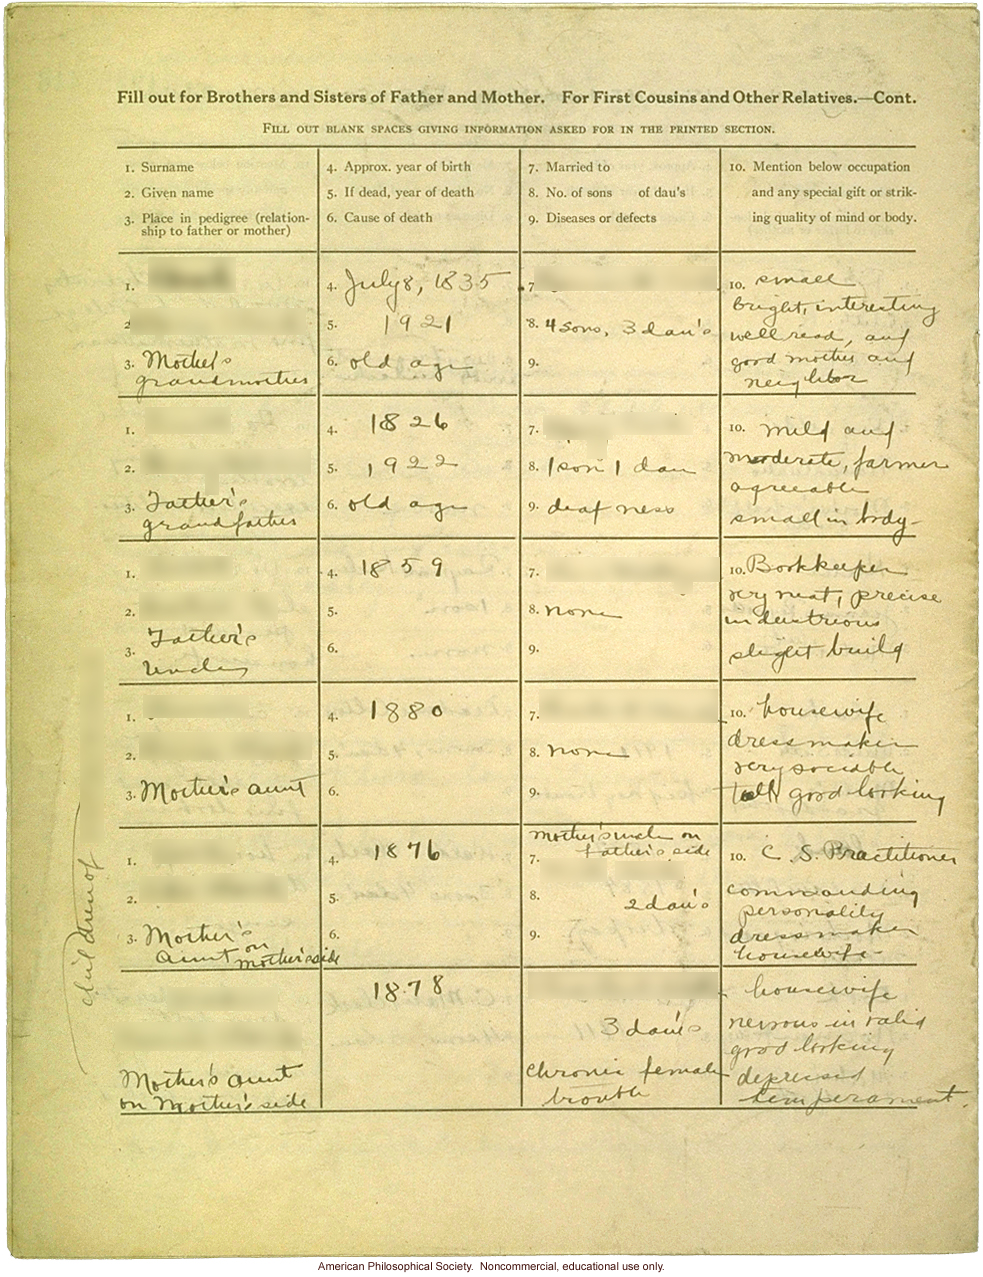 Fill out for Brothers and Sisters of Father and Mother. For First Cousins and Other Relatives.—Cont.
FILL OUT BLANK SPACES GIVING INFORMATION ASKED FOR IN THE PRINTED SECTION.
1. Surname
2. Given name
3. Place in pedigree (relation-
ship to father or mother)
4. Approx. year of birth
5. If dead, year of death
6. Cause of death
7. Married to
8. No. of sons of dau's
9. Diseases or defects
10. Mention below occupation
and any special gift or strik-
ing quality of mind or body.
1.
2
3. Mother's
grandmother
4. July 8, 1835
5. 1921
6. old age
7
8. 4 sons, 3 dau's
9.
10. small
bright, interesting
well read, and
good mother and
neighbor
1.
2.
3. Father's
grandfather
4. 1826
5. 1922
6. old age
7.
8. 1 son 1 dau
9. deafness
10. mild and
moderate, farmer
agreeable
small in body-
1.
2.
3. Father's
Uncle
4. 1859
5.
6.
7.
8. none
9.
10. Bookkeeper
very neat, precise
industrious
slight build
1.
2.
3. Mother's aunt
4. 1880
5.
6.
7.
8. none
9.
10. housewife
dressmaker
very sociable
tall good looking
1.
2.
3. Mother's
aunt on
mother's side
4. 1876
5.
6.
Mother's uncle on
7. Father's side
8. 2 dau's
9.
10. C. S. Practitioner
commanding
personality
dressmaker
housewife-
children of
Mother's aunt
on Mother's side
1878
3 dau's
chronic female
trouble
housewife
nervous invalid
good looking
depressed
temperament.
American Philosophical Society. Noncommercial, educational use only.